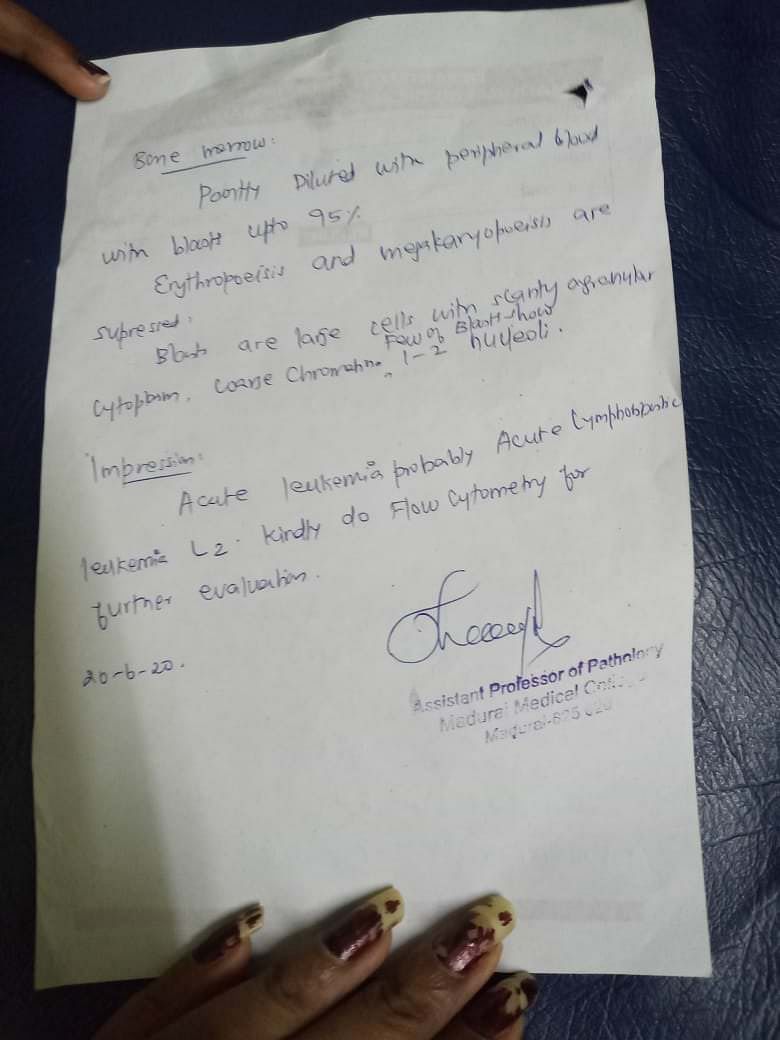 Bone marrow:
Diluted with peripheral blood
with blasts upto 95%
Erythropoeisis and megakaryopoeisis are
supressed.
Blasts are large cells with scanty agranular
cytoplasm. Coarse Chromatin. Few of Blasts show
1-2 nucleoli.
Impression:
Acute leukemia probably Acute Lymphoblastic
leukemia L2. Kindly do Flow Cytometry for
further evaluation.
20-6-20.
Assistant Professor of Pathology
Madurai Medical
Madurai-625 020